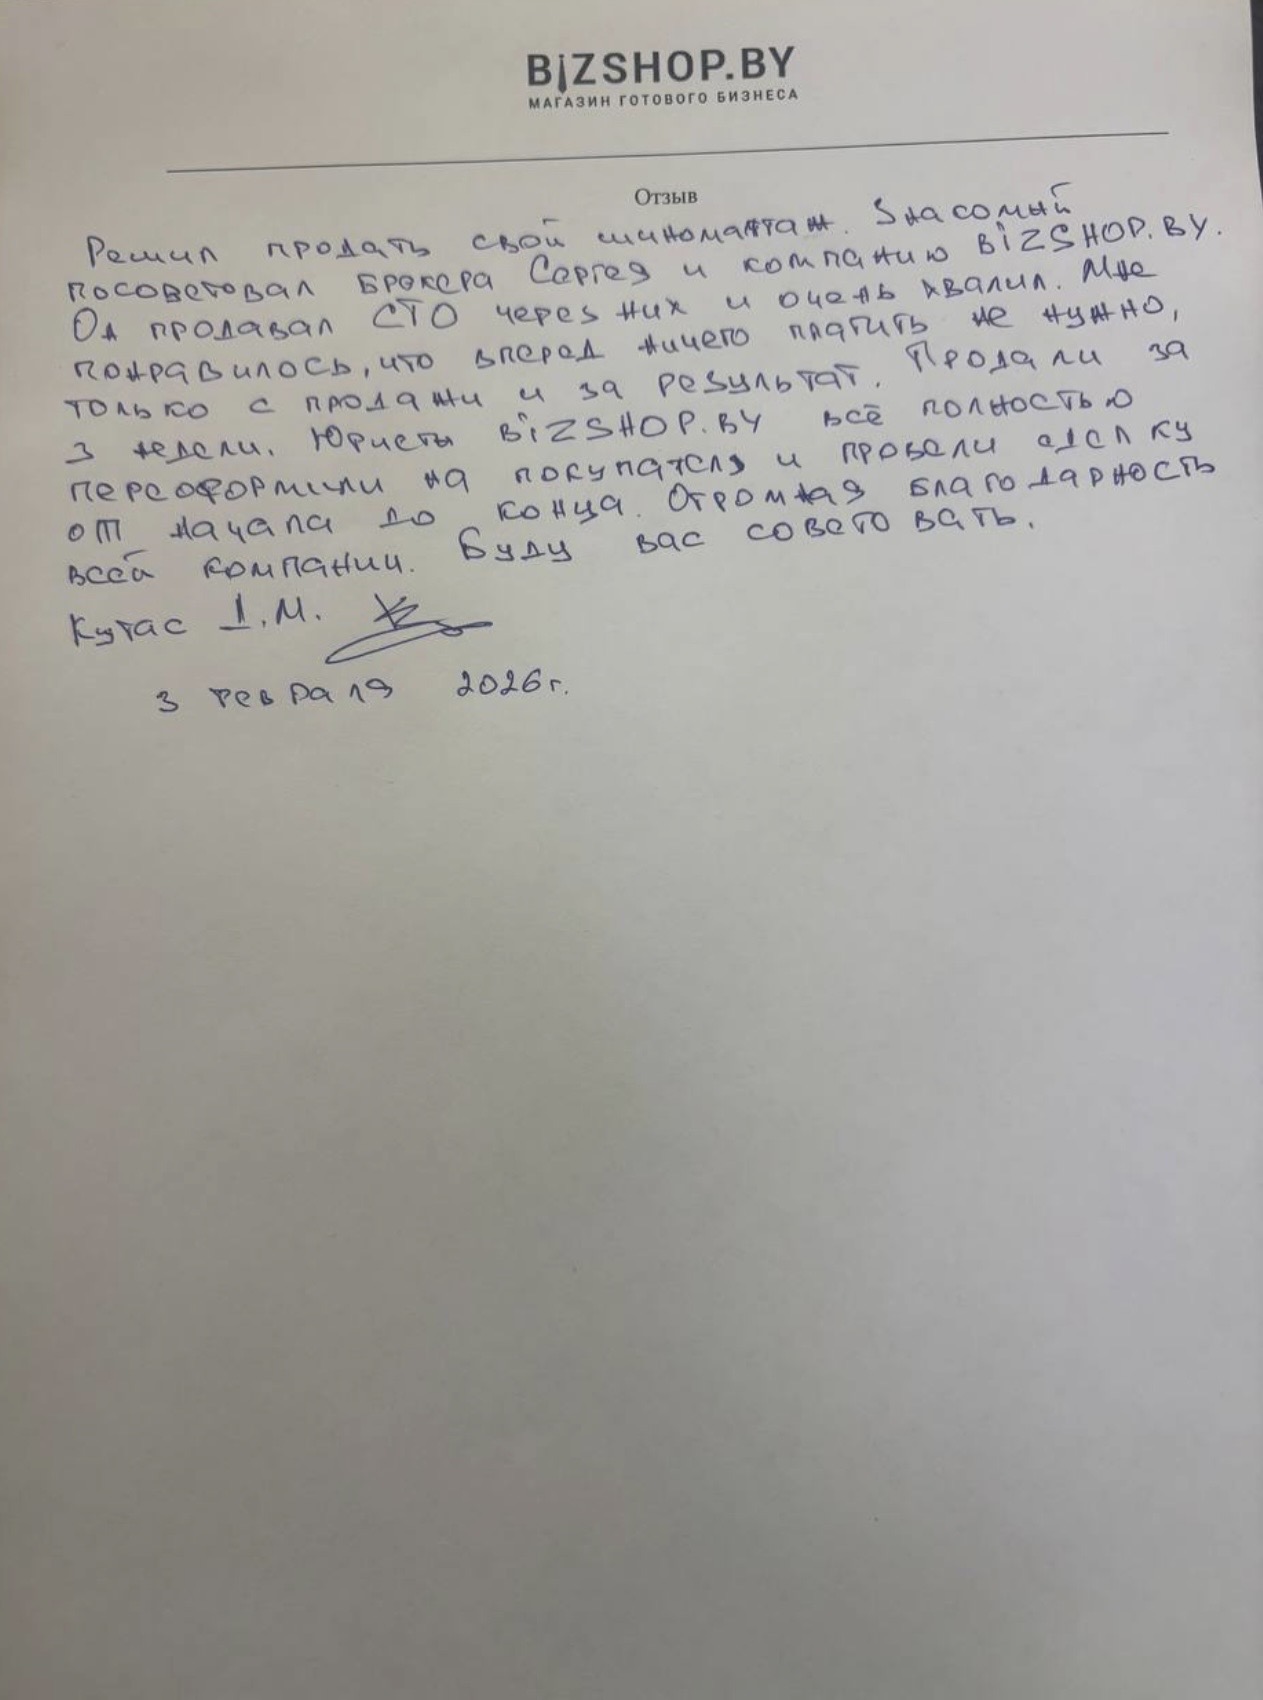 BiZSHOP.BY
МАГАЗИН ГОТОВОГО БИЗНЕСА
Отзыв
Решил продать свой шиномантаж. Знакомый
посоветовал брокера Сергея и компанию BiZSHOP.BY.
Он продавал СТО через них и очень хвалил. Мне
понравилось, что вперед ничего платить не нужно,
только с продажи и за результат. Продали за
3 недели. Юристы BiZSHOP.BY всё полностью
переоформили на покупателя и провели сделку
от начала до конца. Огромная благодарность
всей компании. Буду вас советовать.
Кутас Д.М.
3 февраля 2026г.